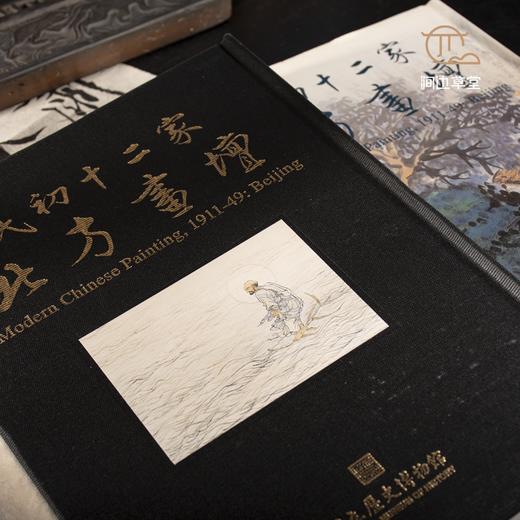 民初十二家
北方畫壇
Modern Chinese Painting, 1911-49: Beijing
歷史博物館
MUSEUM OF HISTORY
初十二家
畫
Painting, 1911-49: Beijing
阿頭草堂